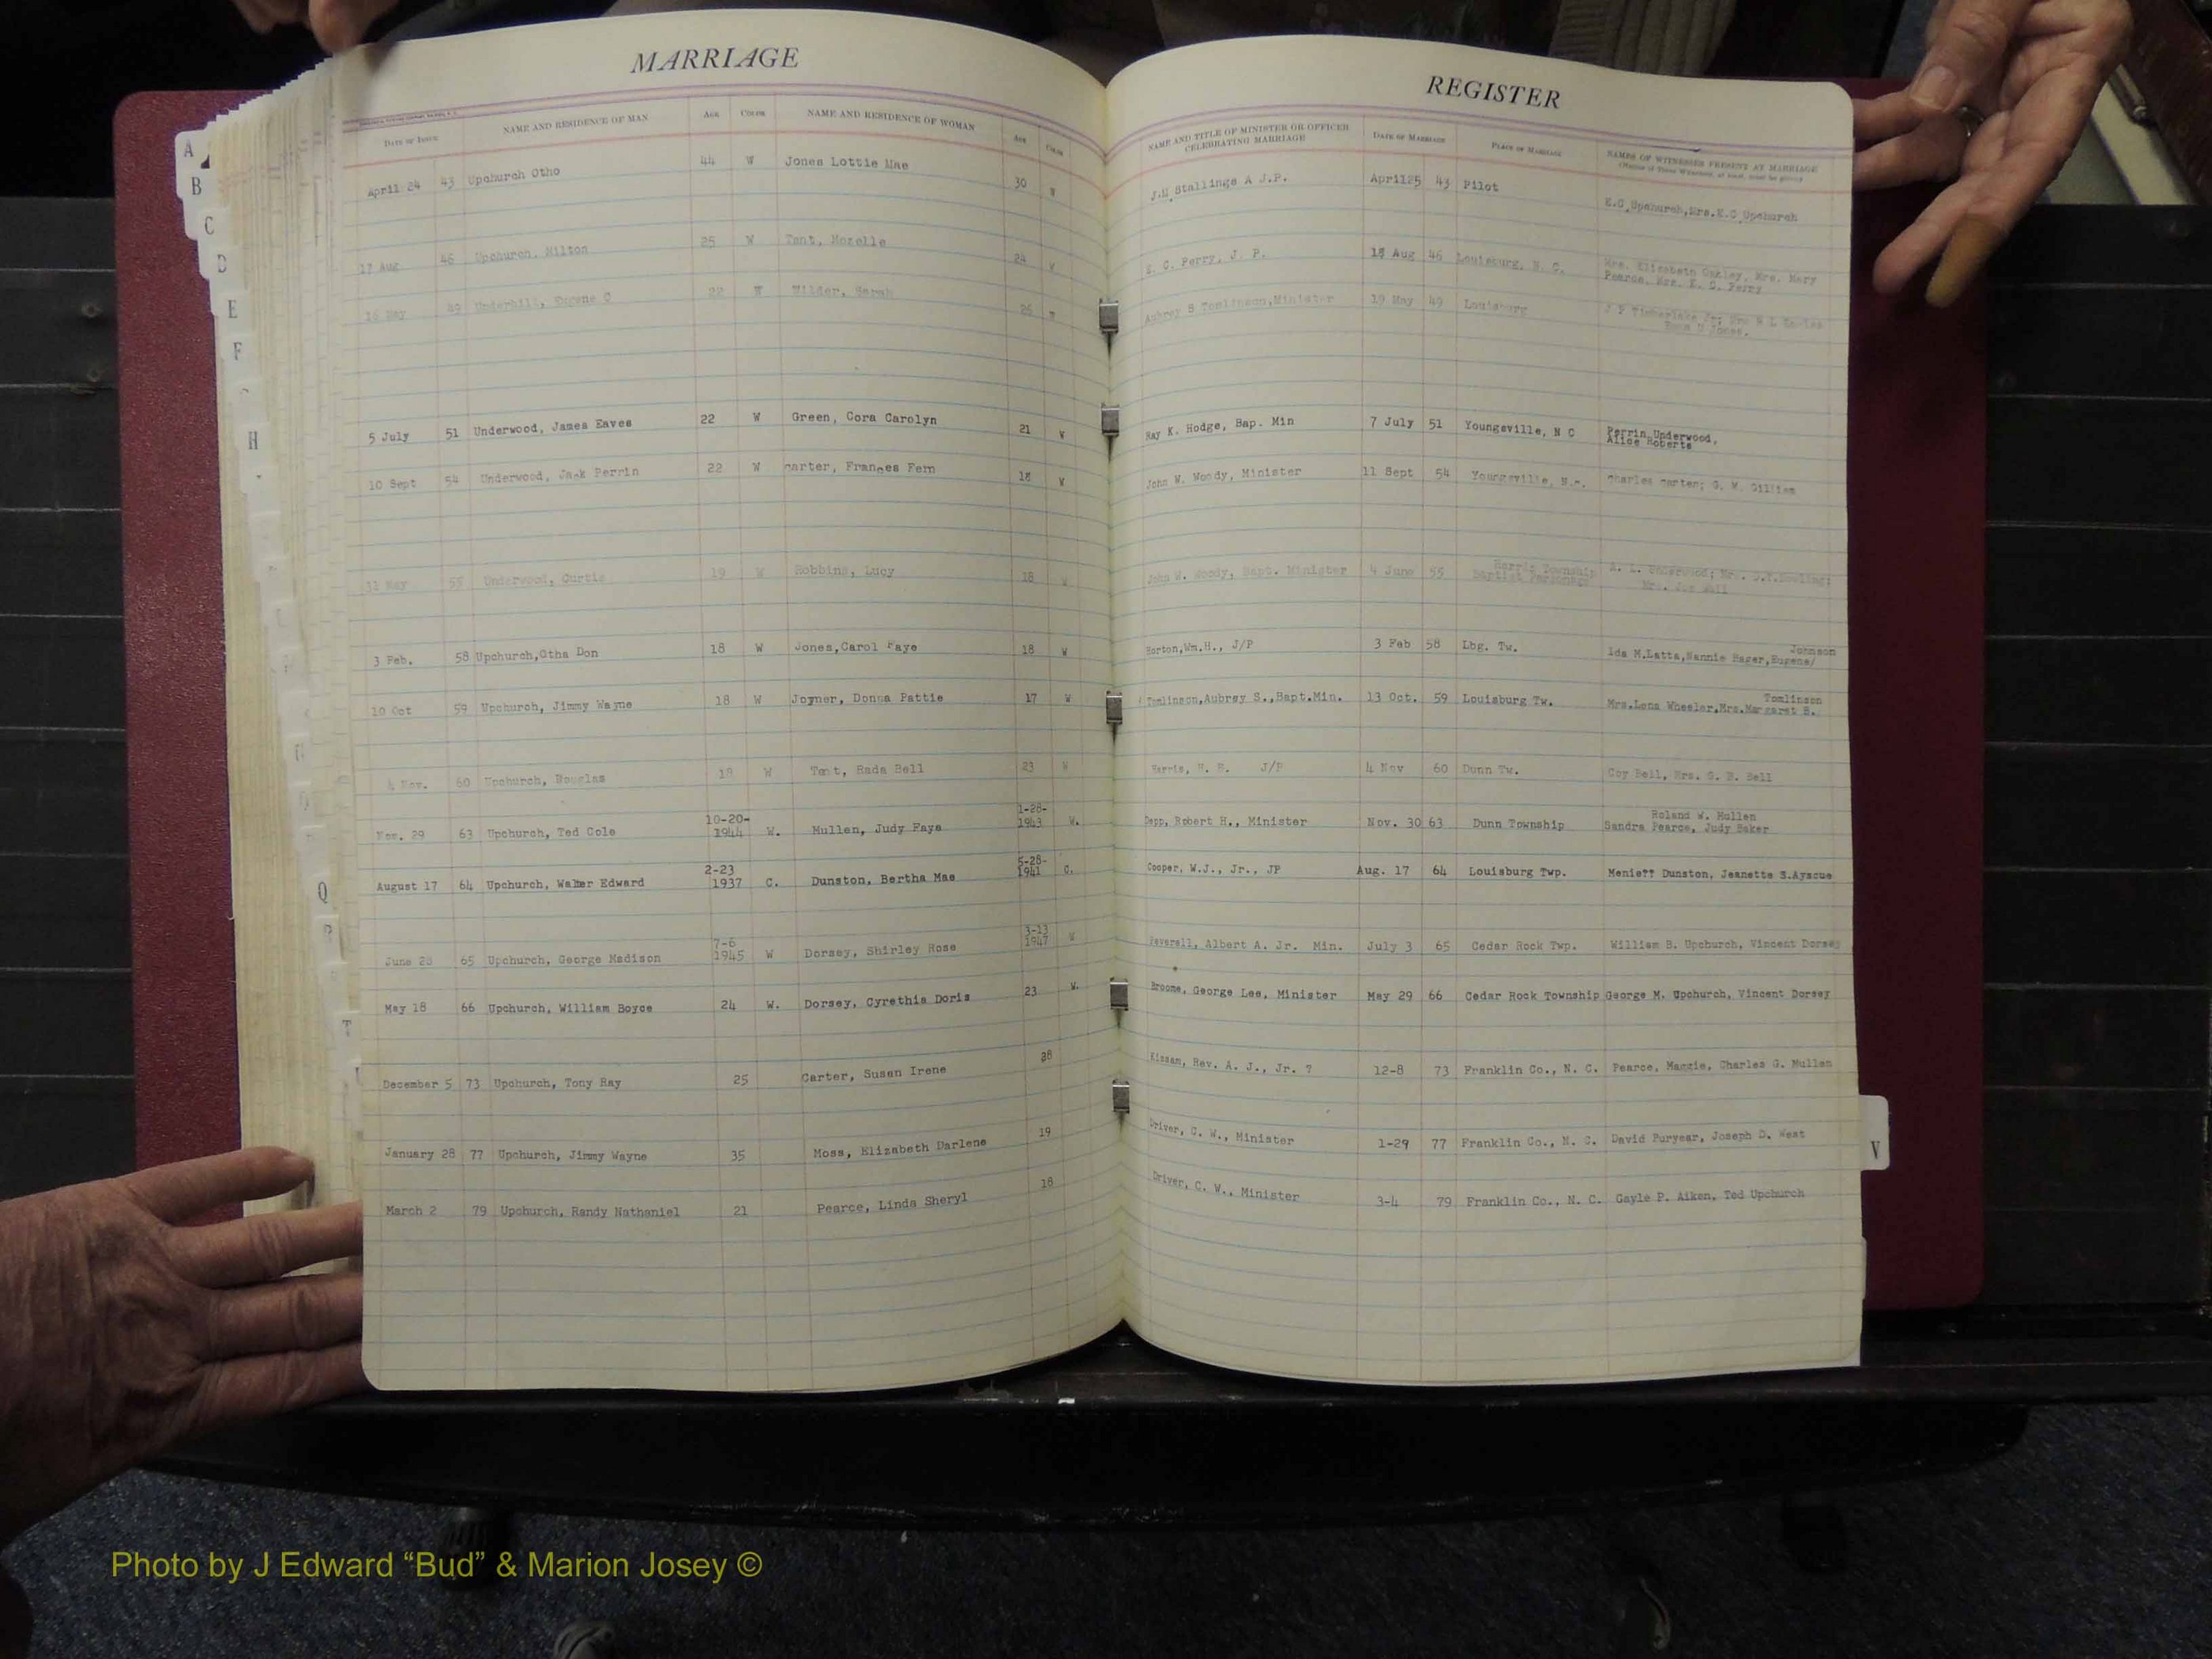 MARRIAGE
DATE OF ISSUE NAME AND RESIDENCE OF MAN AGE COLOR NAME AND RESIDENCE OF WOMAN AGE COLOR
April 24 43 Upchurch Otho 44 W Jones Lottie Mae 30 W
17 Aug 46 Upchurch, Milton 25 W Tant, Mozelle 24 W
16 May 49 Underhill, Eugene C 22 W Wilder, Sarah 26 W
5 July 51 Underwood, James Eaves 22 W Green, Cora Carolyn 21 W
10 Sept 54 Underwood, Jack Perrin 22 W Carter, Frances Fern 18 W
31 May 55 Underwood, Curtis 19 W Robbins, Lucy 18 W
3 Feb. 58 Upchurch,Otha Don 18 W Jones,Carol Faye 18 W
10 Oct 59 Upchurch, Jimmy Wayne 18 W Joyner, Donna Pattie 17 W
4 Nov. 60 Upchurch, Douglas 18 W Tant, Rada Bell 23 W
Nov. 29 63 Upchurch, Ted Cole 10-20-1944 W. Mullen, Judy Faye 1-28-1943 W.
August 17 64 Upchurch, Walter Edward 2-23 1937 C. Dunston, Bertha Mae 5-28-1941 C.
June 28 65 Upchurch, George Madison 7-6 1945 W Dorsey, Shirley Rose 3-13 1947 W
May 18 66 Upchurch, William Boyce 24 W. Dorsey, Cyrethia Doris 23 W.
December 5 73 Upchurch, Tony Ray 25 Carter, Susan Irene 28
January 28 77 Upchurch, Jimmy Wayne 35 Moss, Elizabeth Darlene 19
March 2 79 Upchurch, Randy Nathaniel 21 Pearce, Linda Sheryl 18
REGISTER
NAME AND TITLE OF MINISTER OR OFFICER CELEBRATING MARRIAGE DATE OF MARRIAGE PLACE OF MARRIAGE NAMES OF WITNESSES PRESENT AT MARRIAGE
J.M Stallings A J.P. April25 43 Pilot
E.C Upchurch,Mrs.E.C Upchurch
E. C. Perry, J. P. 18 Aug 46 Louisburg, N. C. Mrs. Elizabeth Oakley, Mrs. Mary
Pearce, Mrs. E. C. Perry
Aubrey S Tomlinson,Minister 19 May 49 Louisburg J P Timberlake Jr; Mrs
Jones.
Ray K. Hodge, Bap. Min 7 July 51 Youngsville, N C Perrin Underwood,
Alice Roberts
John W. Woody, Minister 11 Sept 54 Youngsville, N.C. Charles Carter; G. M. Gilliam
John W. Woody, Bapt. Minister 4 June 55 Harris Township A. L. Underwood; Mrs.
Baptist Parsonage Mrs. Joe
Horton,Wm.H., J/P 3 Feb 58 Lbg. Tw. Johnson
Ida M.Latta,Nannie Hager,Eugene/
Tomlinson,Aubrey S.,Bapt.Min. 13 Oct. 59 Louisburg Tw. Tomlinson
Mrs.Lona Wheeler,Mrs.Margaret B.
Harris, H. B. J/P 4 Nov 60 Dunn Tw. Coy Bell, Mrs. G. B. Bell
Roland W. Mullen
Capp, Robert H., Minister Nov. 30 63 Dunn Township Sandra Pearce, Judy Baker
Cooper, W.J., Jr., JP Aug. 17 64 Louisburg Twp. Menieff Dunston, Jeanette S.Ayscue
Peverall, Albert A. Jr. Min. July 3 65 Cedar Rock Twp. William B. Upchurch, Vincent Dorsey
Broome, George Lee, Minister May 29 66 Cedar Rock Township George M. Upchurch, Vincent Dorsey
Kissam, Rev. A. J., Jr. ? 12-8 73 Franklin Co., N. C. Pearce, Maggie, Charles G. Mullen
Driver, C. W., Minister 1-29 77 Franklin Co., N. C. David Puryear, Joseph D. West
Driver, C. W., Minister 3-4 79 Franklin Co., N. C. Gayle P. Aiken, Ted Upchurch
A
B
C
D
E
F
H
Q
T
V
Photo by J Edward “Bud” & Marion Josey ©